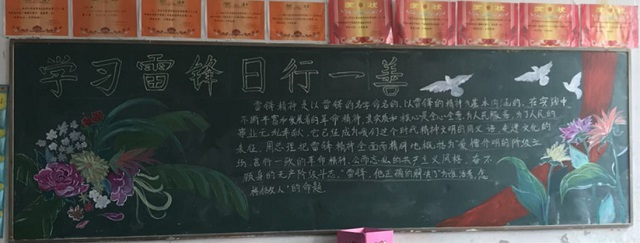 学习雷锋日行一善
雷锋精神是以雷锋的名字命名的、以雷锋的精神为基本内涵的、在实践中
不断丰富和发展着的革命精神，其实质和核心是全心全意为人民服务，为了人民的
事业无私奉献，它已经成为我们这个时代精神文明的同义语、先进文化的
表征。周总理把雷锋精神全面而精辟地概括为“爱憎分明的阶级立
场、言行一致的革命精神、公而忘私的共产主义风格、奋不
顾身的无产阶级斗志。”雷锋，他正确的解决了为谁活着，怎